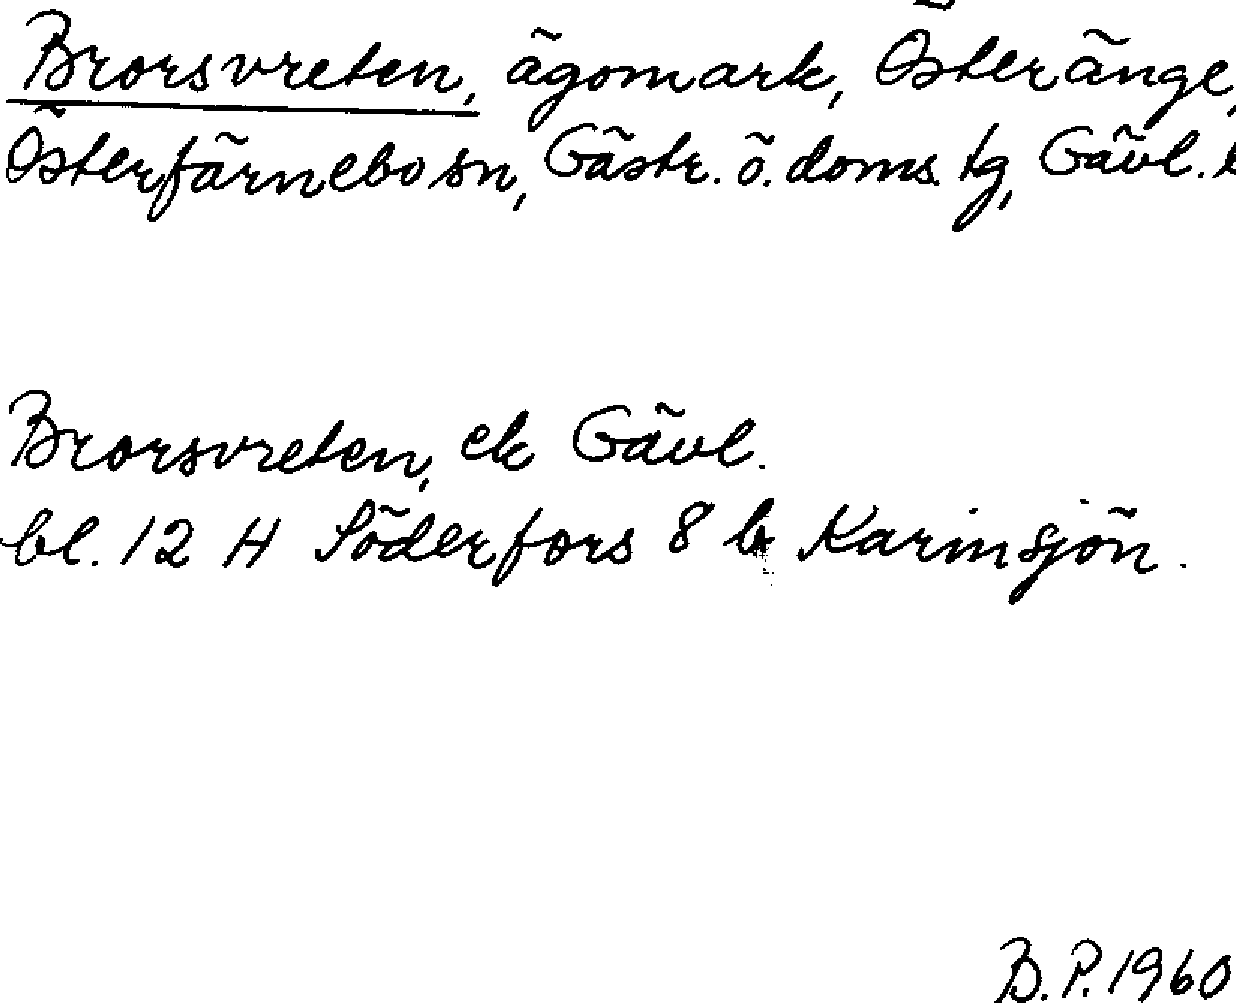 Brorsvreten, ägomark, Österänge,
Österfärnebo sn, Gästr. ö. doms. tg, Gävl. l
Brorsvreten, ek Gävl.
bl. 12 H Söderfors 8 b Karinsjön.
B.P. 1960